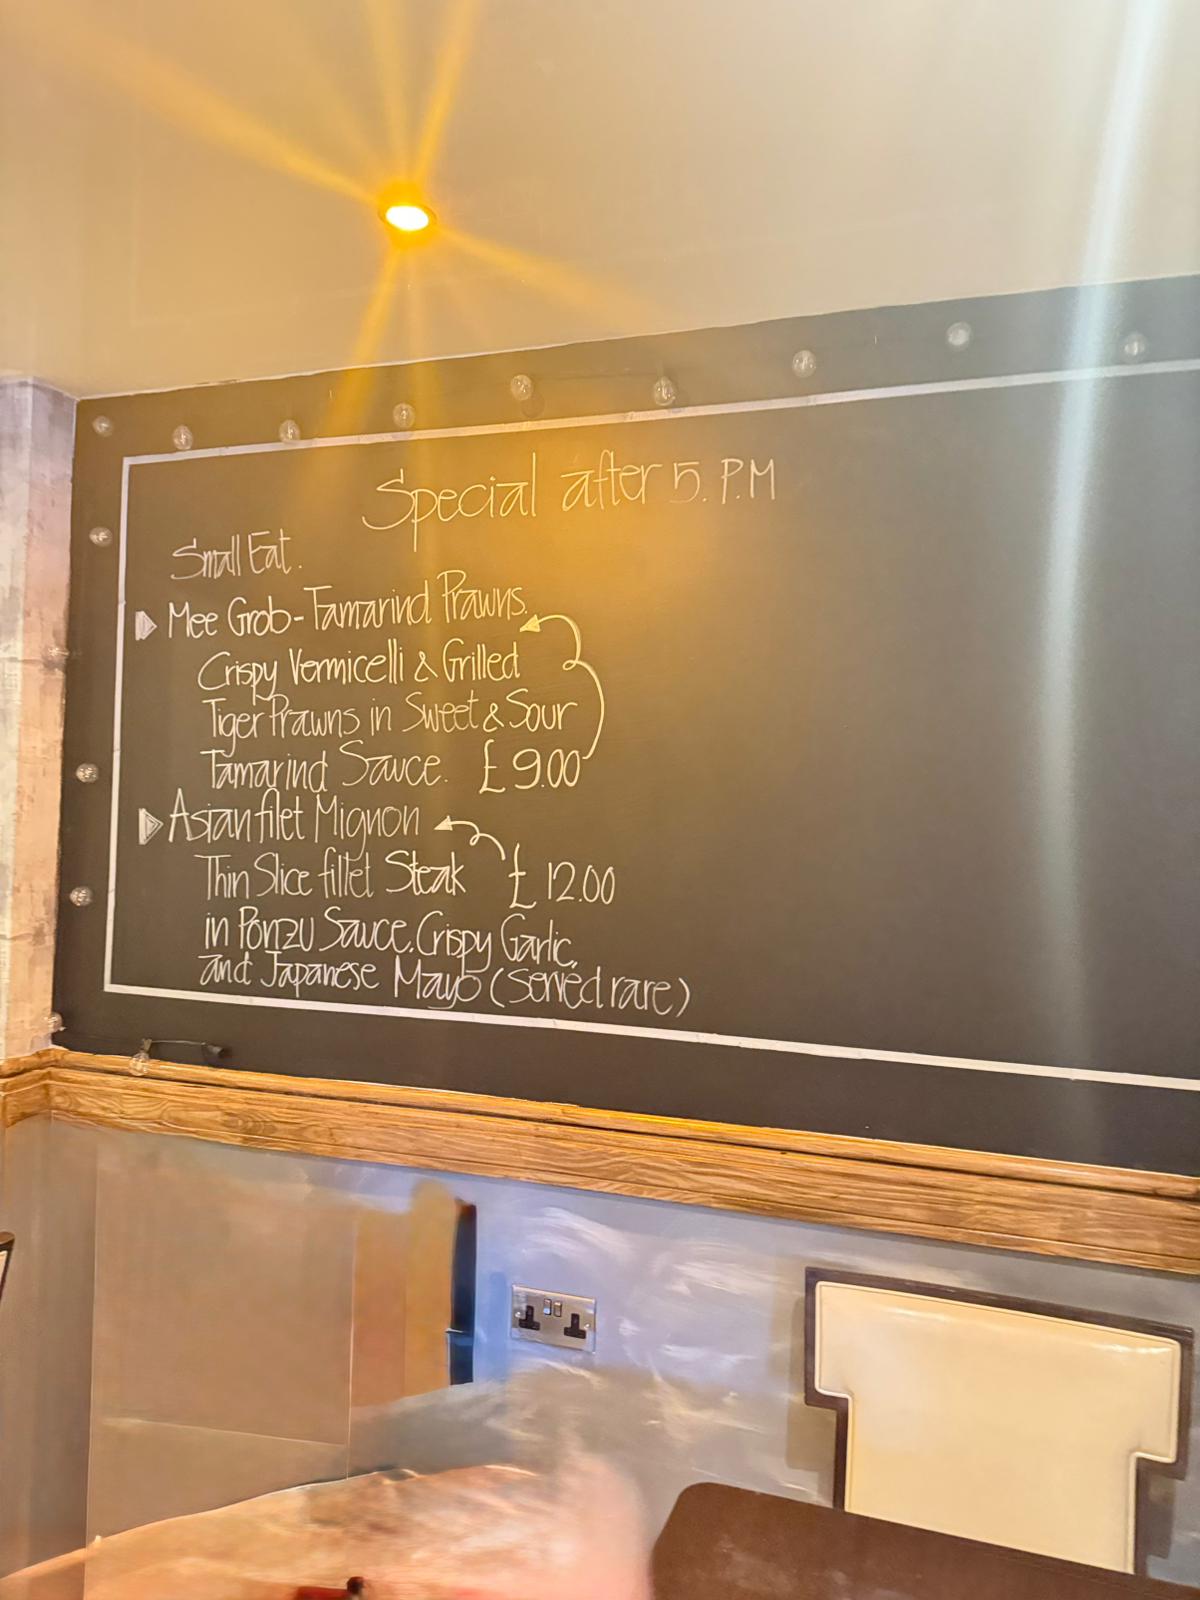 Special after 5. P.M
Small Eat.
Mee Grob - Tamarind Prawns.
Crispy Vermicelli & Grilled
Tiger Prawns in Sweet & Sour
Tamarind Sauce. £9.00
Asian filet Mignon
Thin Slice fillet Steak £12.00
in Ponzu Sauce, Crispy Garlic,
and Japanese Mayo (Served rare)